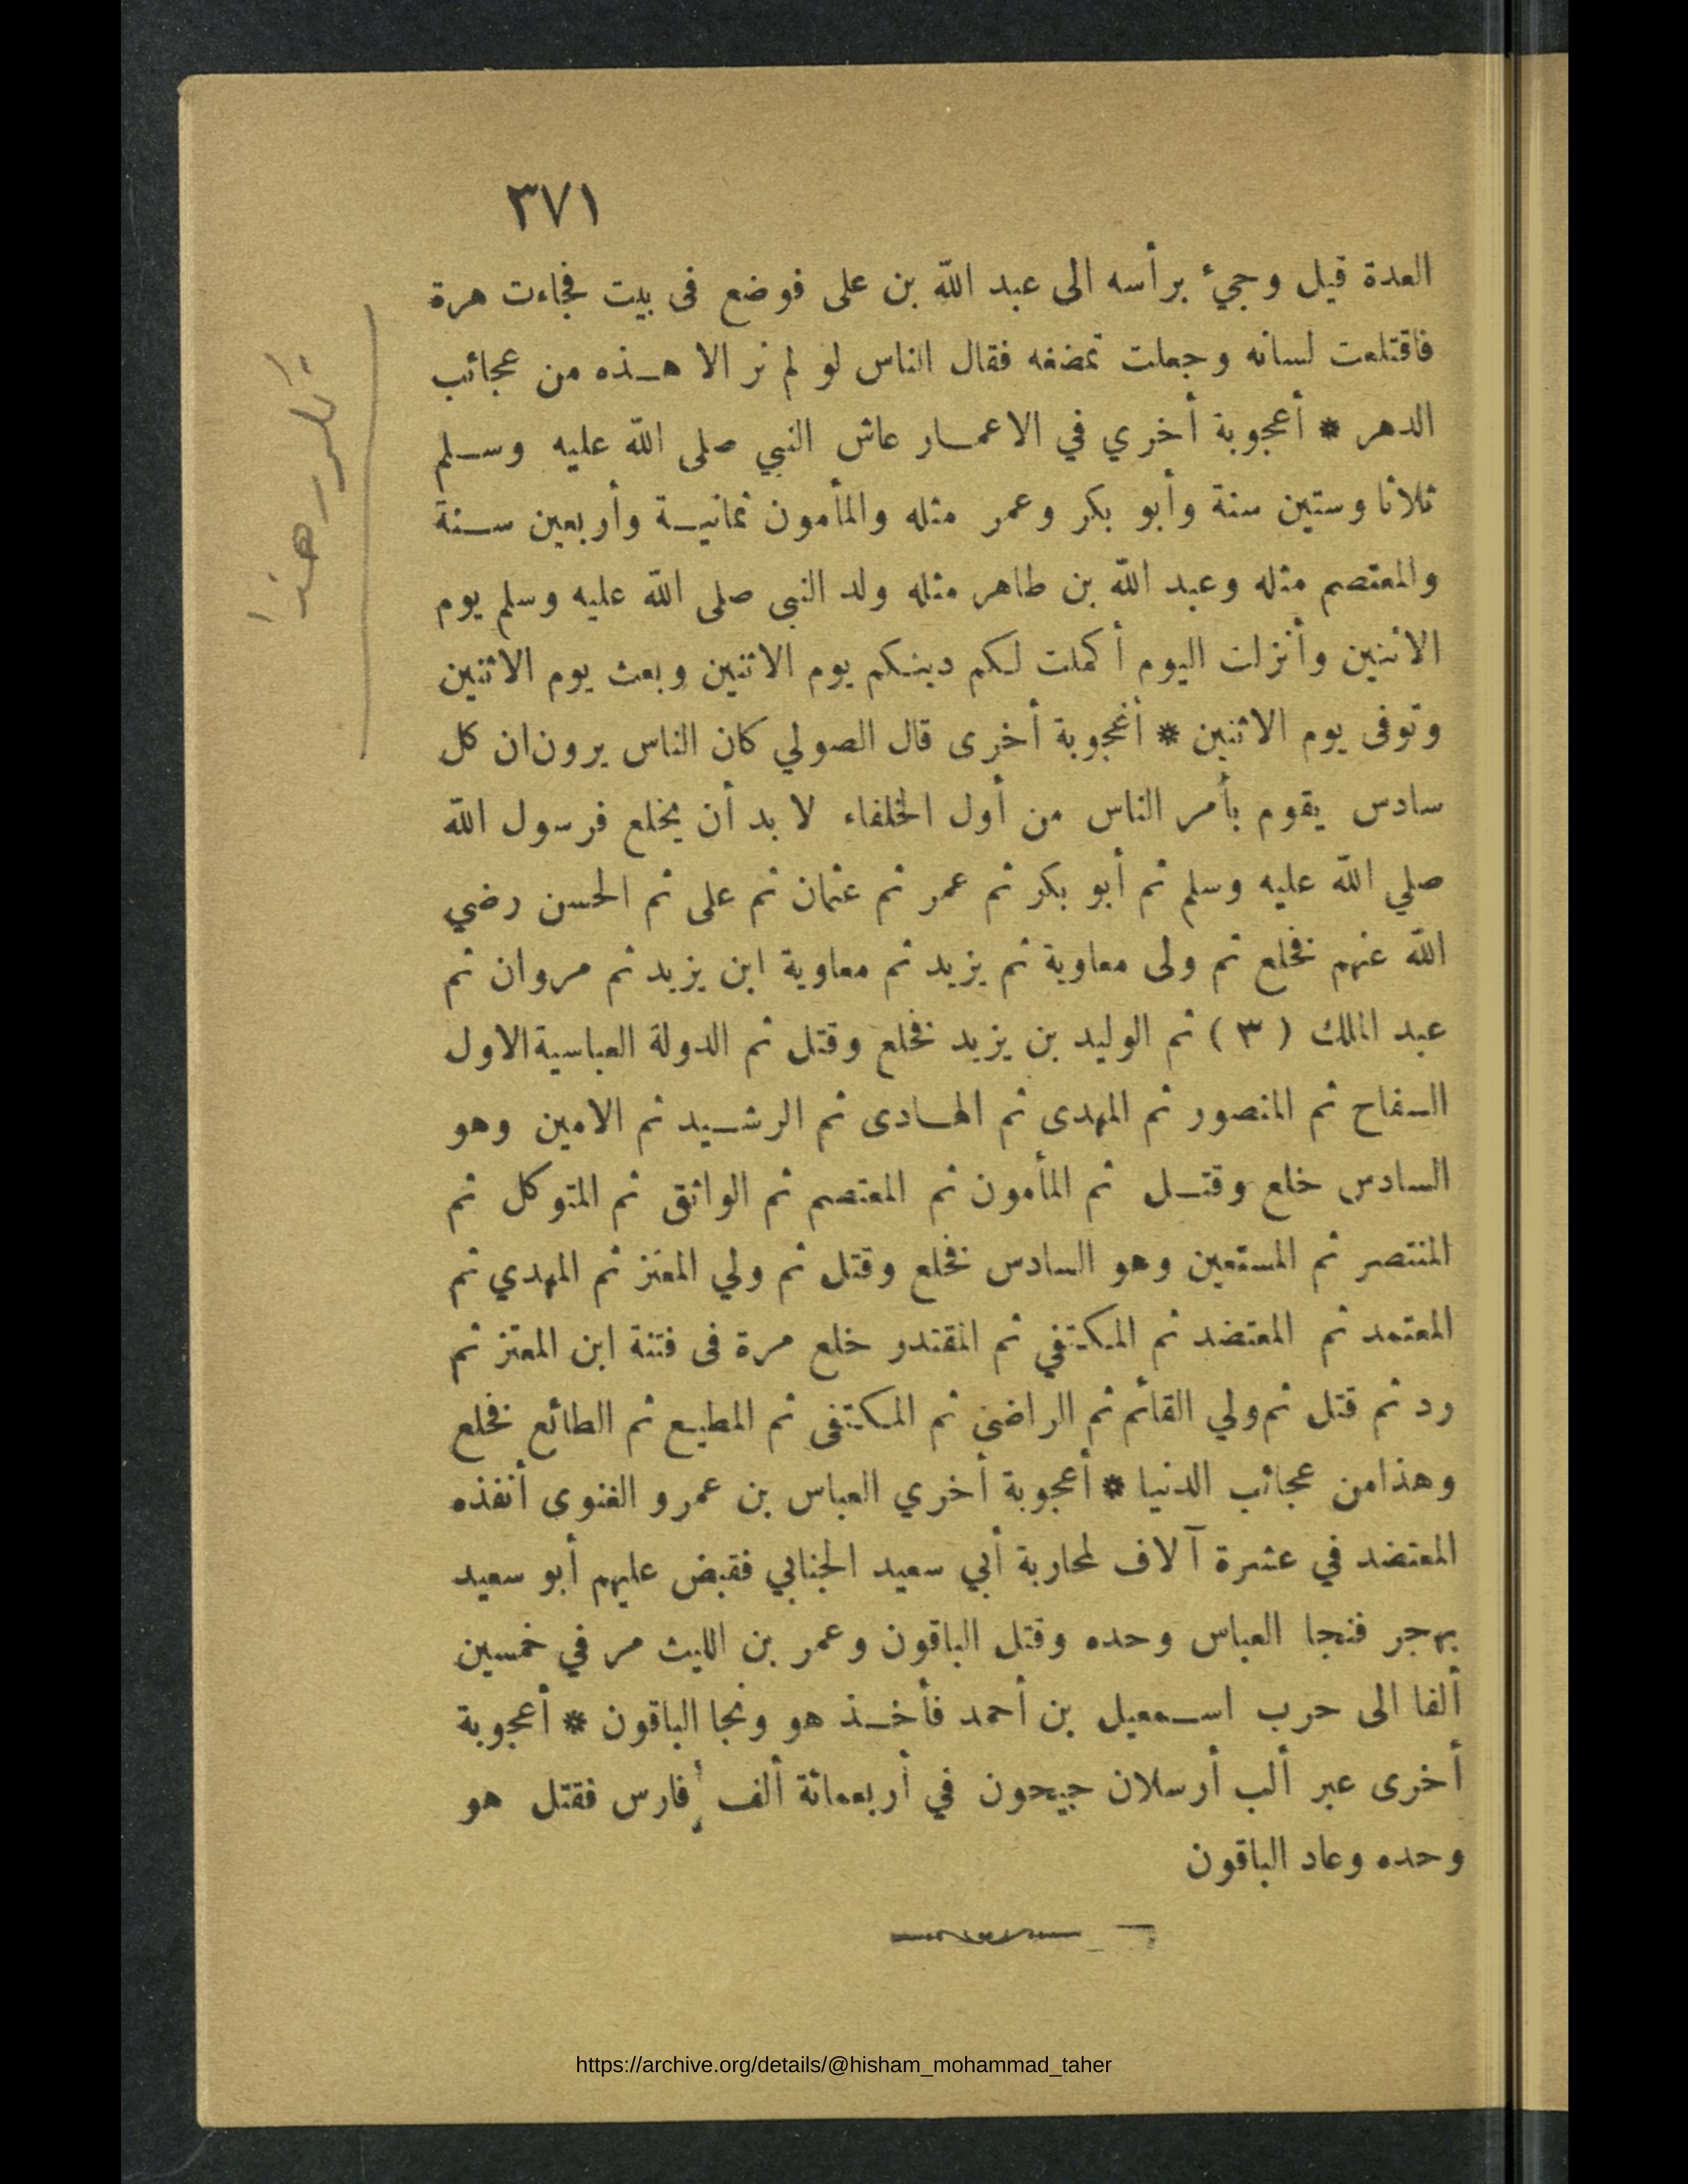 ٣٧١
العدة قيل وجيء برأسه الى عبد الله بن على فوضع فى بيت فجاءت هرة
فاقتلعت لسانه وجعلت تمضغه فقال الناس لو لم نر الا هـذه من عجائب
الدهر * أعجوبة أخري في الاعمـار عاش النبي صلى الله عليه وسـلم
ثلاثا وستين سنة وأبو بكر وعمر مثله والمأمون ثمانيـة وأربعين سـنة
والمعتصم مثله وعبد الله بن طاهر مثله ولد النبى صلى الله عليه وسلم يوم
الاثنين وأنزلت اليوم أكملت لكم دينكم يوم الاثنين وبعث يوم الاثنين
وتوفى يوم الاثنين * أعجوبة أخرى قال الصولي كان الناس يرون ان كل
سادس يقوم بأمر الناس من أول الخلفاء لا بد أن يخلع فرسول الله
صلي الله عليه وسلم ثم أبو بكر ثم عمر ثم عثمان ثم على ثم الحسن رضي
الله عنهم فخلع ثم ولى معاوية ثم يزيد ثم معاوية ابن يزيد ثم مروان ثم
عبد الملك ( ٣ ) ثم الوليد بن يزيد فخلع وقتل ثم الدولة العباسية الاول
السفاح ثم المنصور ثم المهدى ثم الهـادى ثم الرشـيد ثم الامين وهو
السادس خلع وقتـل ثم المأمون ثم المعتصم ثم الواثق ثم المتوكل ثم
المنتصر ثم المستعين وهو السادس فخلع وقتل ثم ولي المعتز ثم المهدي ثم
المعتمد ثم المعتضد ثم المكتفي ثم المقتدر خلع مرة فى فتنة ابن المعتز ثم
رد ثم قتل ثم ولي القائم ثم الراضى ثم المكتفى ثم المطيع ثم الطائع فخلع
وهذا من عجائب الدنيا * أعجوبة أخري العباس بن عمرو الغنوى أنفذه
المعتضد في عشرة آلاف لمحاربة أبي سعيد الجنابي فقبض عليهم أبو سعيد
بهجر فنجا العباس وحده وقتل الباقون وعمر بن الليث مر في خمسين
ألفا الى حرب اسـمعيل بن أحمد فأخـذ هو ونجا الباقون * أعجوبة
أخرى عبر ألب أرسلان جيحون في أربعمائة ألف فارس فقتل هو
وحده وعاد الباقون
تكرر هذا
https://archive.org/details/@hisham_mohammad_taher